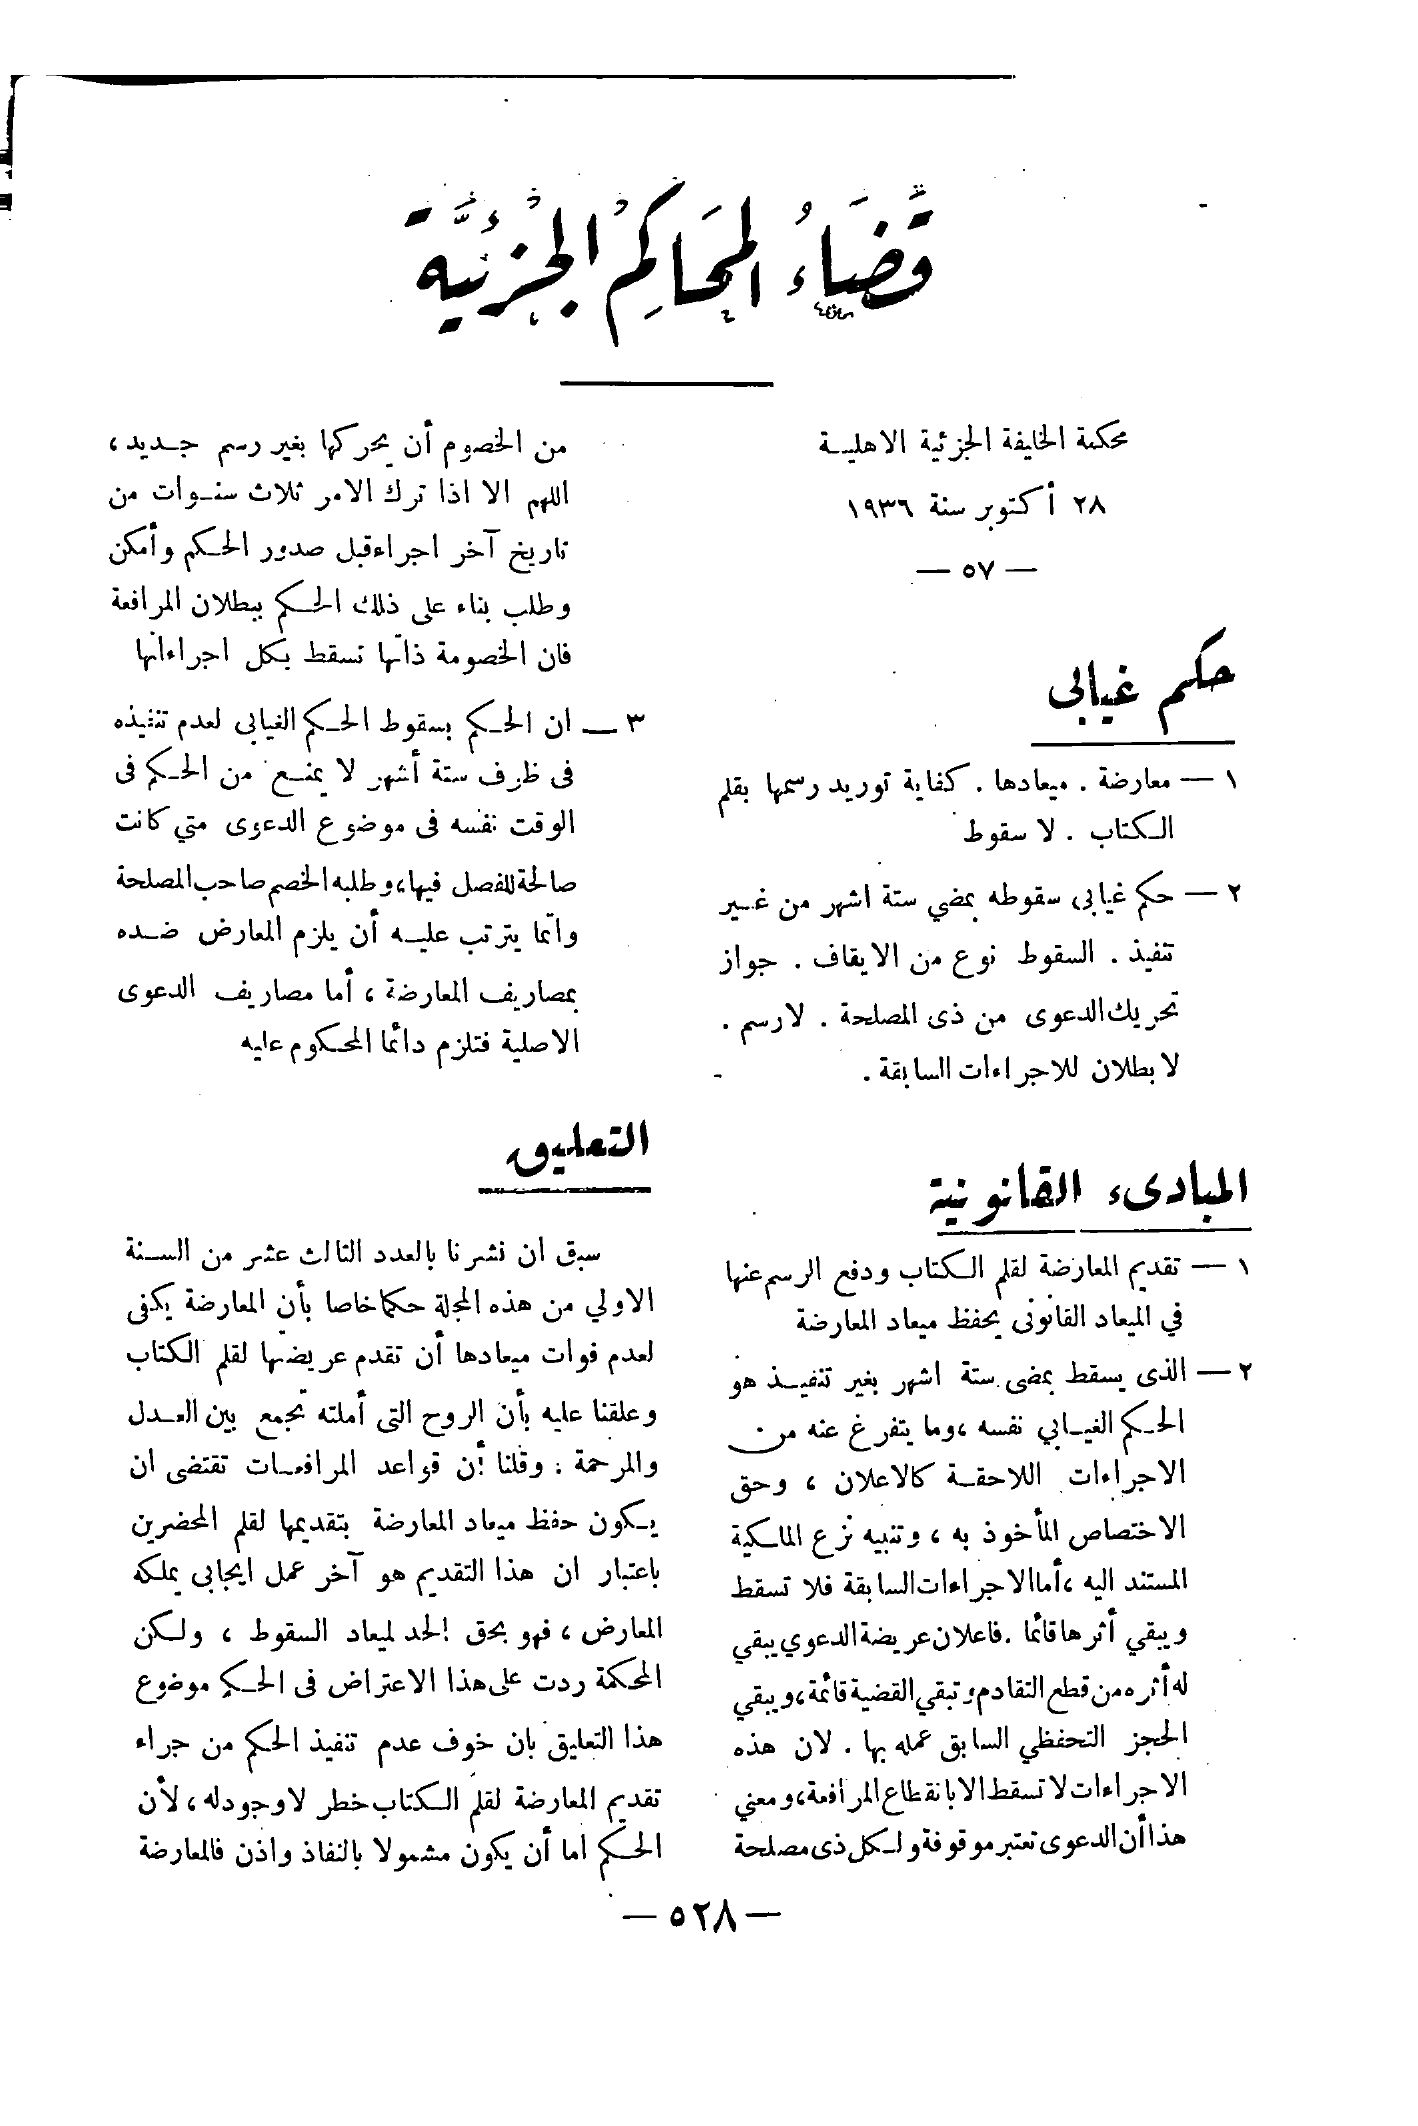 قَضَاءُ المَحَاكِمِ الجُزْئِيَّة
محكمة الخليفة الجزئية الاهلية
٢٨ أكتوبر سنة ١٩٣٦
— ٥٧ —
حكم غيابى
١ — معارضة . ميعادها . كفاية توريد رسمها بقلم
الكتاب . لا سقوط
٢ — حكم غيابى سقوطه بمضي ستة اشهر من غير
تنفيذ . السقوط نوع من الايقاف . جواز
تحريك الدعوى من ذى المصلحة . لا رسم .
لا بطلان للاجراءات السابقة .
المبادىء القانونية
١ — تقديم المعارضة لقلم الكتاب ودفع الرسم عنها
في الميعاد القانونى يحفظ ميعاد المعارضة
٢ — الذى يسقط بمضى ستة اشهر بغير تنفيذ هو
الحكم الغيابي نفسه ، وما يتفرغ عنه من
الاجراءات اللاحقة كالاعلان ، وحق
الاختصاص المأخوذ به ، وتنبيه نزع الملكية
المستند اليه ، أما الاجراءات السابقة فلا تسقط
ويبقي أثرها قائما . فاعلان عريضة الدعوي يبقي
له أثره من قطع التقادم وتبقي القضية قائمة ، ويبقي
الحجز التحفظي السابق عمله بها . لان هذه
الاجراءات لا تسقط الا بانقطاع المرافعة ، ومعني
هذا أن الدعوى تعتبر موقوفة ولكل ذى مصلحة
من الخصوم أن يحركها بغير رسم جديد ،
اللهم الا اذا ترك الامر ثلاث سنوات من
تاريخ آخر اجراء قبل صدور الحكم وأمكن
وطلب بناء على ذلك الحكم ببطلان المرافعة
فان الخصومة ذاتها تسقط بكل اجراءاتها
٣ — ان الحكم بسقوط الحكم الغيابى لعدم تنفيذه
فى ظرف ستة أشهر لا يمنع من الحكم فى
الوقت نفسه فى موضوع الدعوى متي كانت
صالحة للفصل فيها ، وطلبه الخصم صاحب المصلحة
وانما يترتب عليه أن يلزم المعارض ضده
بمصاريف المعارضة ، أما مصاريف الدعوى
الاصلية فتلزم دائما المحكوم عليه
التعليق
سبق ان نشرنا بالعدد الثالث عشر من السنة
الاولي من هذه المجلة حكما خاصا بأن المعارضة يكفى
لعدم فوات ميعادها أن تقدم عريضتها لقلم الكتاب
وعلقنا عليه بأن الروح التى أملته تجمع بين العدل
والمرحمة : وقلنا أن قواعد المرافعات تقتضى ان
يكون حفظ ميعاد المعارضة بتقديمها لقلم المحضرين
باعتبار ان هذا التقديم هو آخر عمل ايجابى يملكه
المعارض ، فهو بحق الحد لميعاد السقوط ، ولكن
المحكمة ردت على هذا الاعتراض فى الحكم موضوع
هذا التعليق بان خوف عدم تنفيذ الحكم من جراء
تقديم المعارضة لقلم الكتاب خطر لا وجود له ، لأن
الحكم اما أن يكون مشمولا بالنفاذ واذن فالمعارضة
— ٥٢٨ —